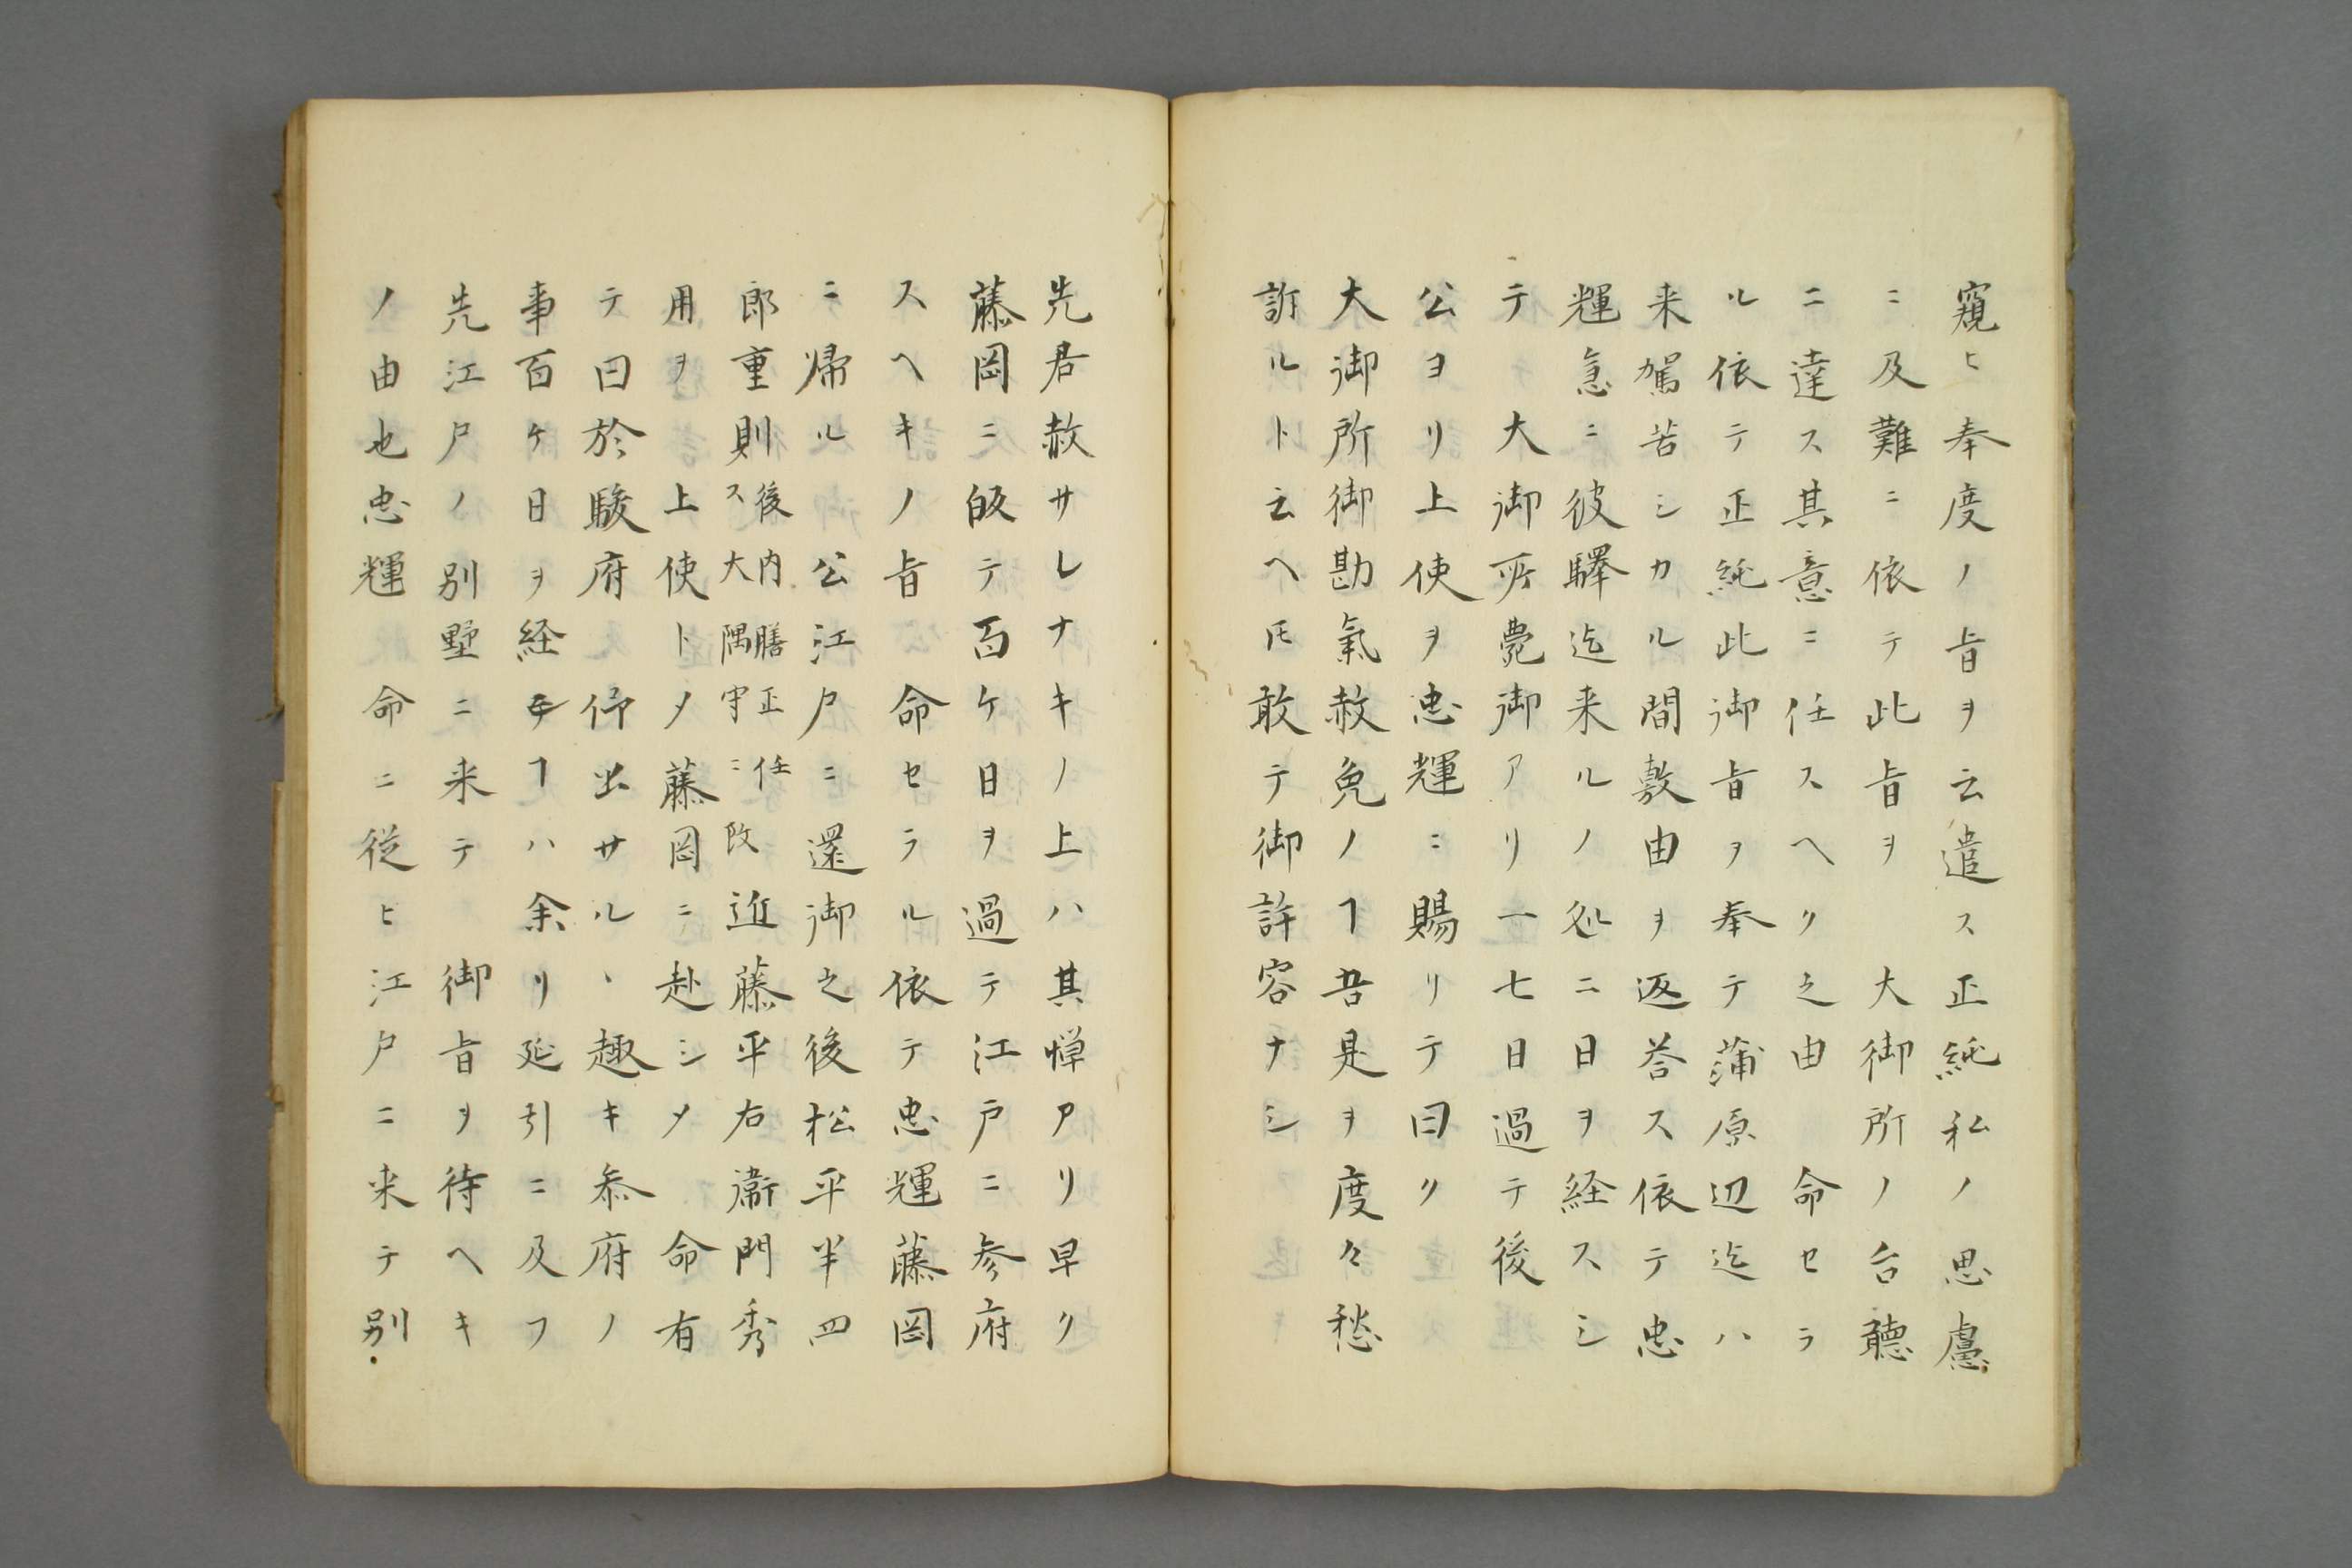 窺ヒ奉度ノ旨ヲ云遣ス正純私ノ思慮
ニ及難ニ依テ此旨ヲ　大御所ノ台聴
ニ達ス其意ニ任スヘクノ由　命セラ
ル依テ正純此御旨ヲ奉テ蒲原辺迄ハ
来駕苦シカル間敷由ヲ返答ス依テ忠
輝急ニ彼驛迄来ルノ処ニ日ヲ経スシ
テ　大御所薨御アリ一七日過テ後
公ヨリ上使ヲ忠輝ニ賜リテ曰ク
大御所御勘氣赦免ノヿ吾是ヲ度々愁
訴ルト云ヘ𪜈敢テ御許容ナシ
先君赦サレナキノ上ハ其憚アリ早ク
藤岡ニ皈テ百ケ日ヲ過テ江戸ニ参府
スヘキノ旨　命セラル依テ忠輝藤岡
ニ帰ル　公江戸ニ還御之後松平半四
郎重則後内膳正任ス大隅守ニ改近藤平右衛門秀
用ヲ　上使トメ藤岡ニ赴シメ　命有
テ曰於駿府仰出サルヽ趣キ参府ノ
事百ケ日ヲ経ヿハ余リ延引ニ及フ
先江戸ノ別墅ニ来テ　御旨ヲ待ヘキ
ノ由也忠輝命ニ従ヒ江戸ニ来テ別